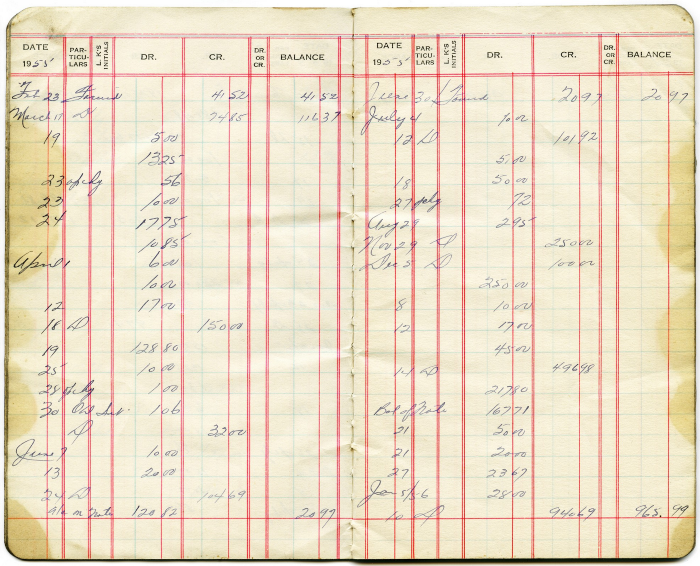 DATE PAR- TICU- LARS L. K'S INITIALS DR. CR. DR. OR CR. BALANCE
1955
Feb 23 Forwd 41 52 41 52
March 11 D 74 85 116 37
19 5 00
13 25
23 op chg 56
23 10 00
24 17 75
10 85
April 1 6 00
10 00
12 17 00
18 D 150 00
19 128 80
25 10 00
28 op chg 1 00
30 Int. 1 06
D 32 00
June 7 10 00
13 20 00
24 D 104 69
a/c on Note 120 82 20 97
DATE PAR- TICU- LARS L. K'S INITIALS DR. CR. DR. OR CR. BALANCE
1955
June 30 Forwd 20 97 20 97
July 4 10 00
12 D 101 92
5 00
18 50 00
27 chg 72
Aug 29 2 95
Nov 29 D 250 00
Dec 5 D 100 00
250 00
8 10 00
12 17 00
45 00
14 D 496 98
217 80
Bal of Note 167 71
21 50 00
21 20 00
27 23 67
Jan 5/56 28 00
10 D 940 69 965.99